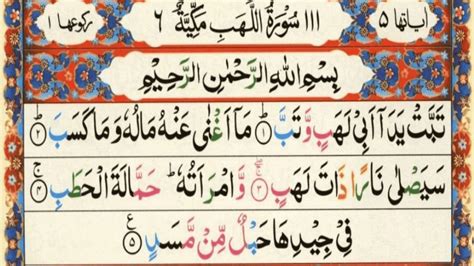 اٰیاتها ۵ ١١١ سُوْرَةُ اللَّهَبِ مَكِّيَّةٌ ٦ رکوعها ١
بِسْمِ اللهِ الرَّحْمٰنِ الرَّحِيْمِ
تَبَّتْ يَدَاۤ اَبِيْ لَهَبٍ وَّتَبَّ ﴿١﴾ مَاۤ اَغْنٰى عَنْهُ مَالُهٗ وَمَا كَسَبَ ﴿٢﴾
سَيَصْلٰى نَارًا ذَاتَ لَهَبٍ ﴿٣﴾ وَّامْرَاَتُهٗ ؕ حَمَّالَةَ الْحَطَبِ ﴿٤﴾
فِيْ جِيْدِهَا حَبْلٌ مِّنْ مَّسَدٍ ﴿٥﴾